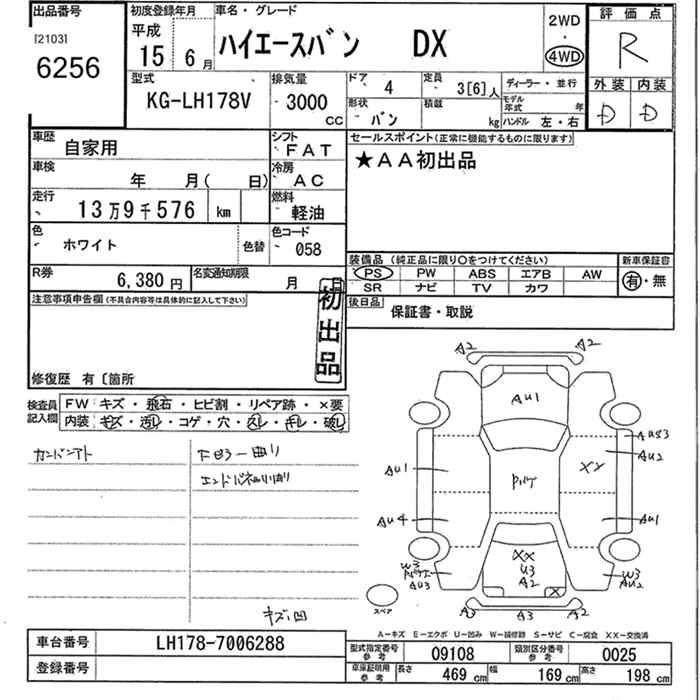 出品番号
[2103]
6256
初度登録年月
平成
15年 6月
車名・グレード
ハイエースバン DX
2WD
・
4WD
評価点
R
外装 内装
D D
型式
KG-LH178V
排気量
3000
CC
ドア
4
形状
バン
定員
3[6]人
積載
kg
ディーラー・並行
モデル年式 年
ハンドル 左・右
車歴
自家用
シフト
FAT
車検
年 月( 日)
冷房
AC
走行
13万9千576 km
燃料
軽油
色
ホワイト
色替
色コード
058
R券
6,380円
名変通知期限
月
セールスポイント(正常に機能するものに限ります)
★AA初出品
装備品 (純正品に限り○をつけてください)
PS PW ABS エアB AW
SR ナビ TV カワ
新車保証書
有・無
後日品
保証書・取説
注意事項申告欄(不具合内容等は具体的に記入して下さい)
初出品
修復歴 有〔箇所
検査員記入欄
FW キズ・飛石・ヒビ割・リペア跡・×要
内装 キズ・汚れ・コゲ・穴・スレ・キレ・破れ
カンバンアト
下廻り一曲り
エンドパネル曲り
キズ凹
A2 A2
AU1
AU1
AU4
AU3
AU2
XX
AU1
XX
U3
A2
X
W3
AU3
W3
AU2
A2 A3 A2
スペア
A−キズ E−エクボ U−凹み W−補修跡 S−サビ C−腐食 XX−交換済
車台番号 LH178-7006288
登録番号
型式指定番号 参考 09108
類別区分番号 参考 0025
車庫証明用 参考 長さ 469cm 幅 169cm 高さ 198cm